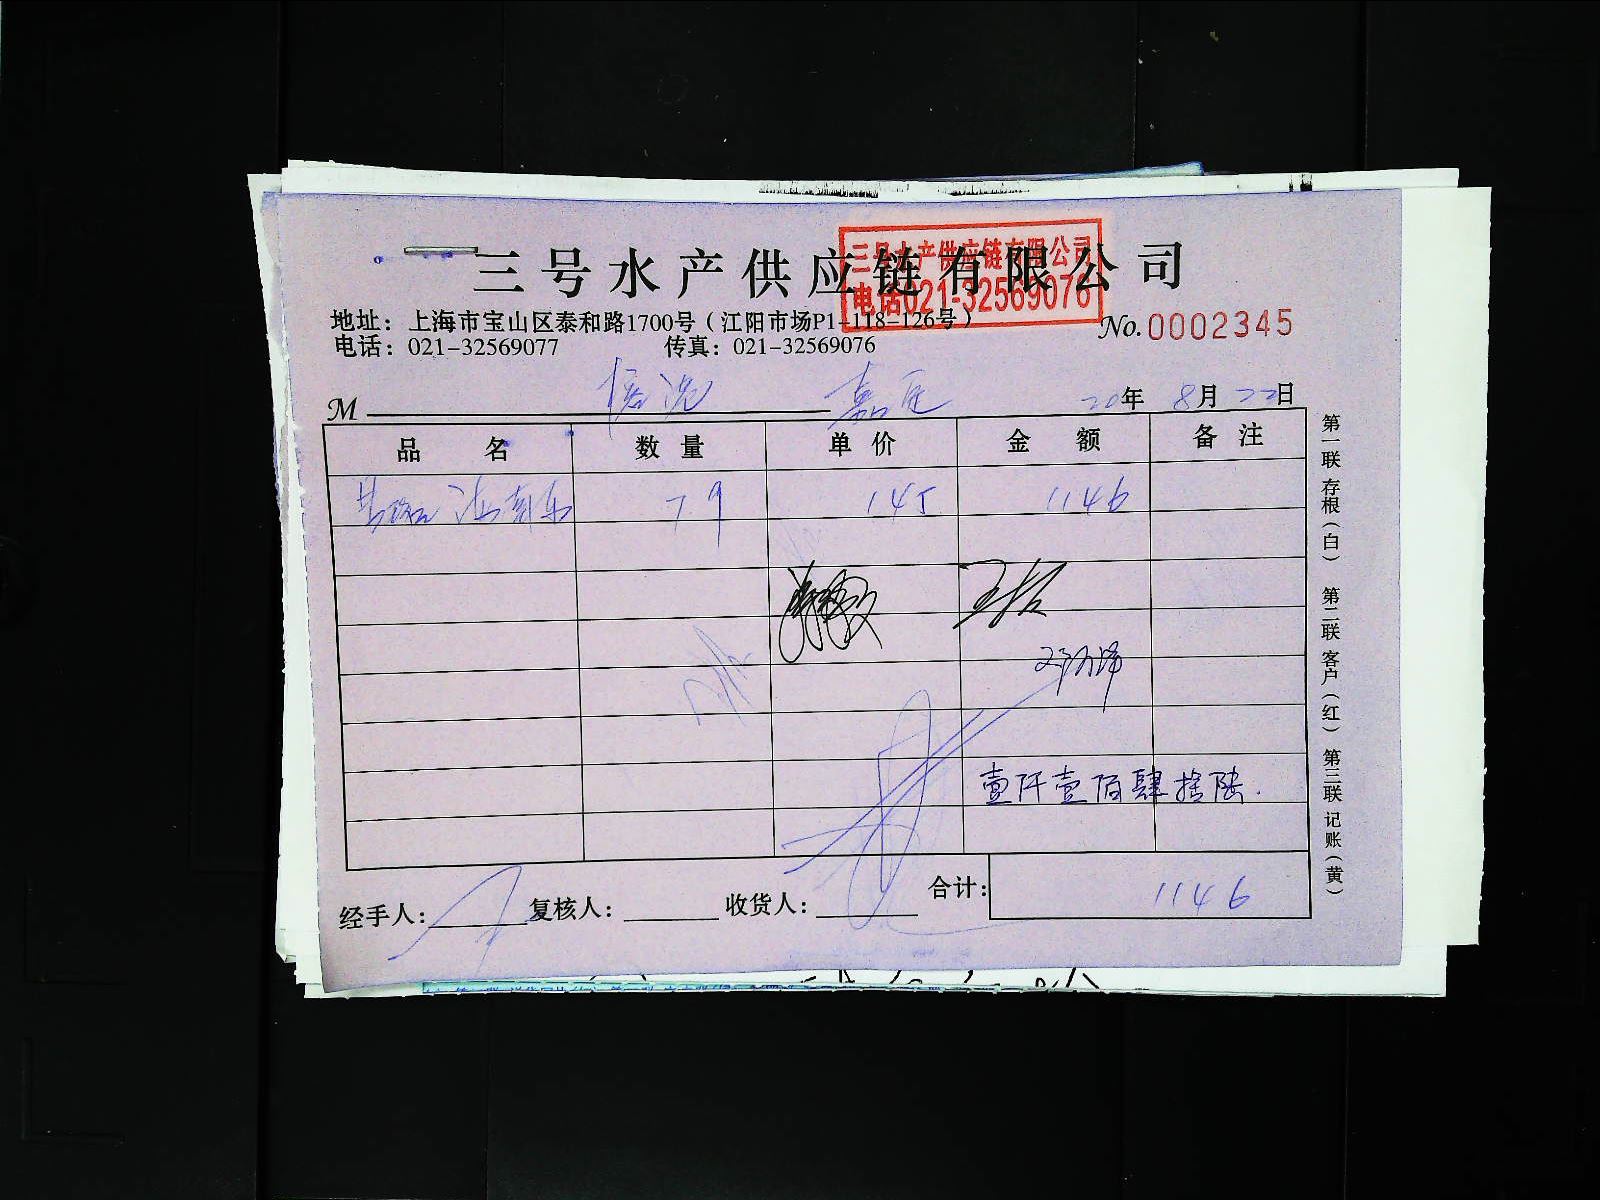 三号水产供应链有限公司
三号水产供应链有限公司
电话021-32569076
地址：上海市宝山区泰和路1700号（江阳市场P1-118-126号）
No.0002345
电话：021-32569077 传真：021-32569076
M 嘉定 20年 8月 22日
品名 数量 单价 金额 备注
7.9 145 1146
壹仟壹佰肆拾陆.
经手人： 复核人： 收货人： 合计： 1146
第一联 存根（白） 第二联 客户（红） 第三联 记账（黄）